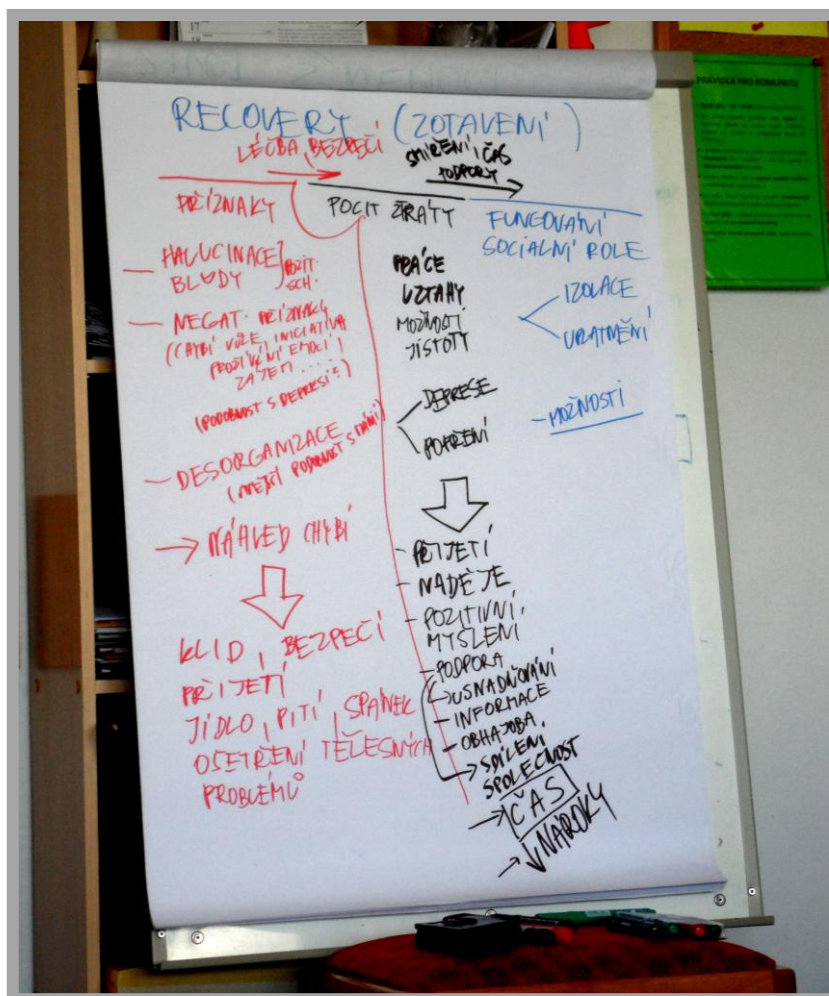 RECOVERY (ZOTAVENÍ)
LÉČBA, BEZPEČÍ
SMÍŘENÍ, ČAS
PODPORY
PŘÍZNAKY
POCIT ZTRÁTY
FUNGOVÁNÍ
SOCIALNÍ ROLE
HALUCINACE
BLUDY
POZIT.
SCH.
NEGAT. PŘÍZNAKY
(CHYBÍ VŮLE, INICIATIVA
PROŽÍVÁNÍ EMOCÍ,
ZÁJEM ....)
(PODOBNOST S DEPRESÍ!)
DESORGANIZACE
PODOBNOST S
→ NÁHLED CHYBÍ
KLID, BEZPEČÍ
PŘIJETÍ
JÍDLO, PITÍ, SPÁNEK
OŠETŘENÍ TĚLESNÝCH
PROBLÉMŮ
PRÁCE
VZTAHY
MOŽNOSTÍ
JISTOTY
DEPRESE
POPŘENÍ
- PŘIJETÍ
- NADĚJE
- POZITIVNÍ
MYŠLENÍ
- PODPORA
USNADŇOVÁNÍ
- INFORMACE
- OBHAJOBA
SDÍLENÍ
SPOLEČNOST
→ ČAS
→ ↓ NÁROKY
IZOLACE
UPLATNĚNÍ
- MOŽNOSTI
PRAVIDLA PRO KOMUNITU
17